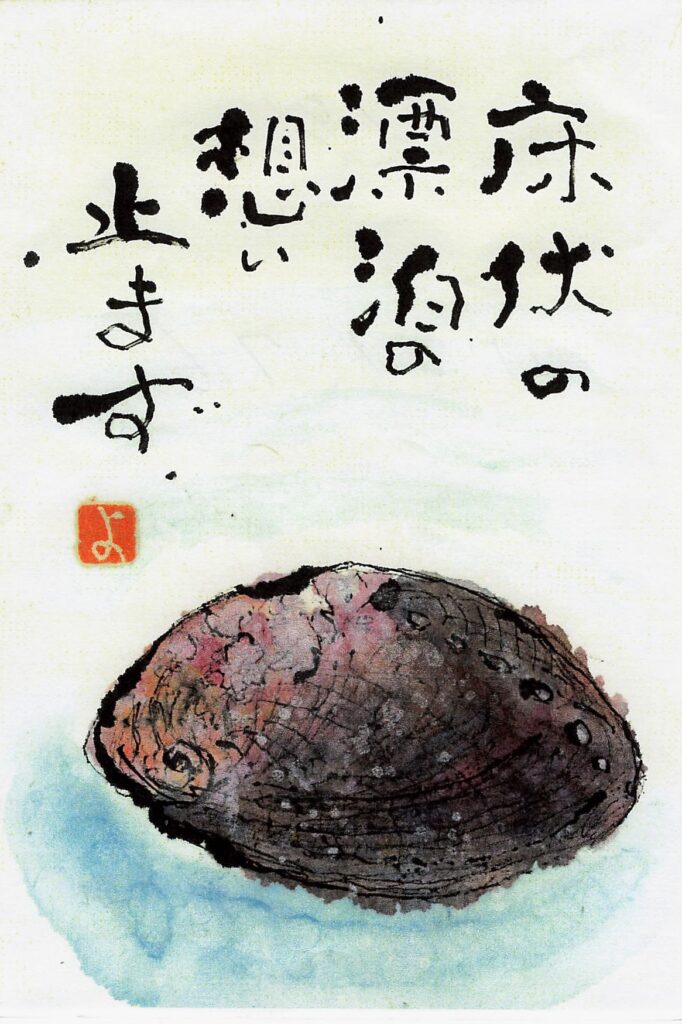 床伏の
漂泊の
想い
止まず
よ